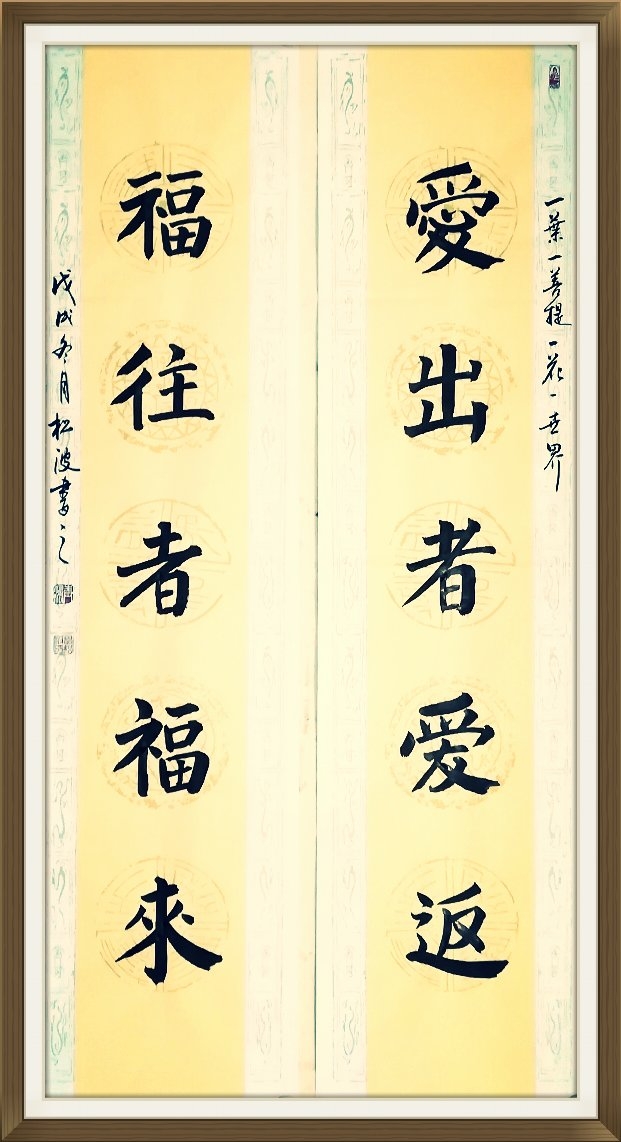 一葉一菩提一花一世界
愛出者爱返
福往者福來
戊戌冬月松波書之